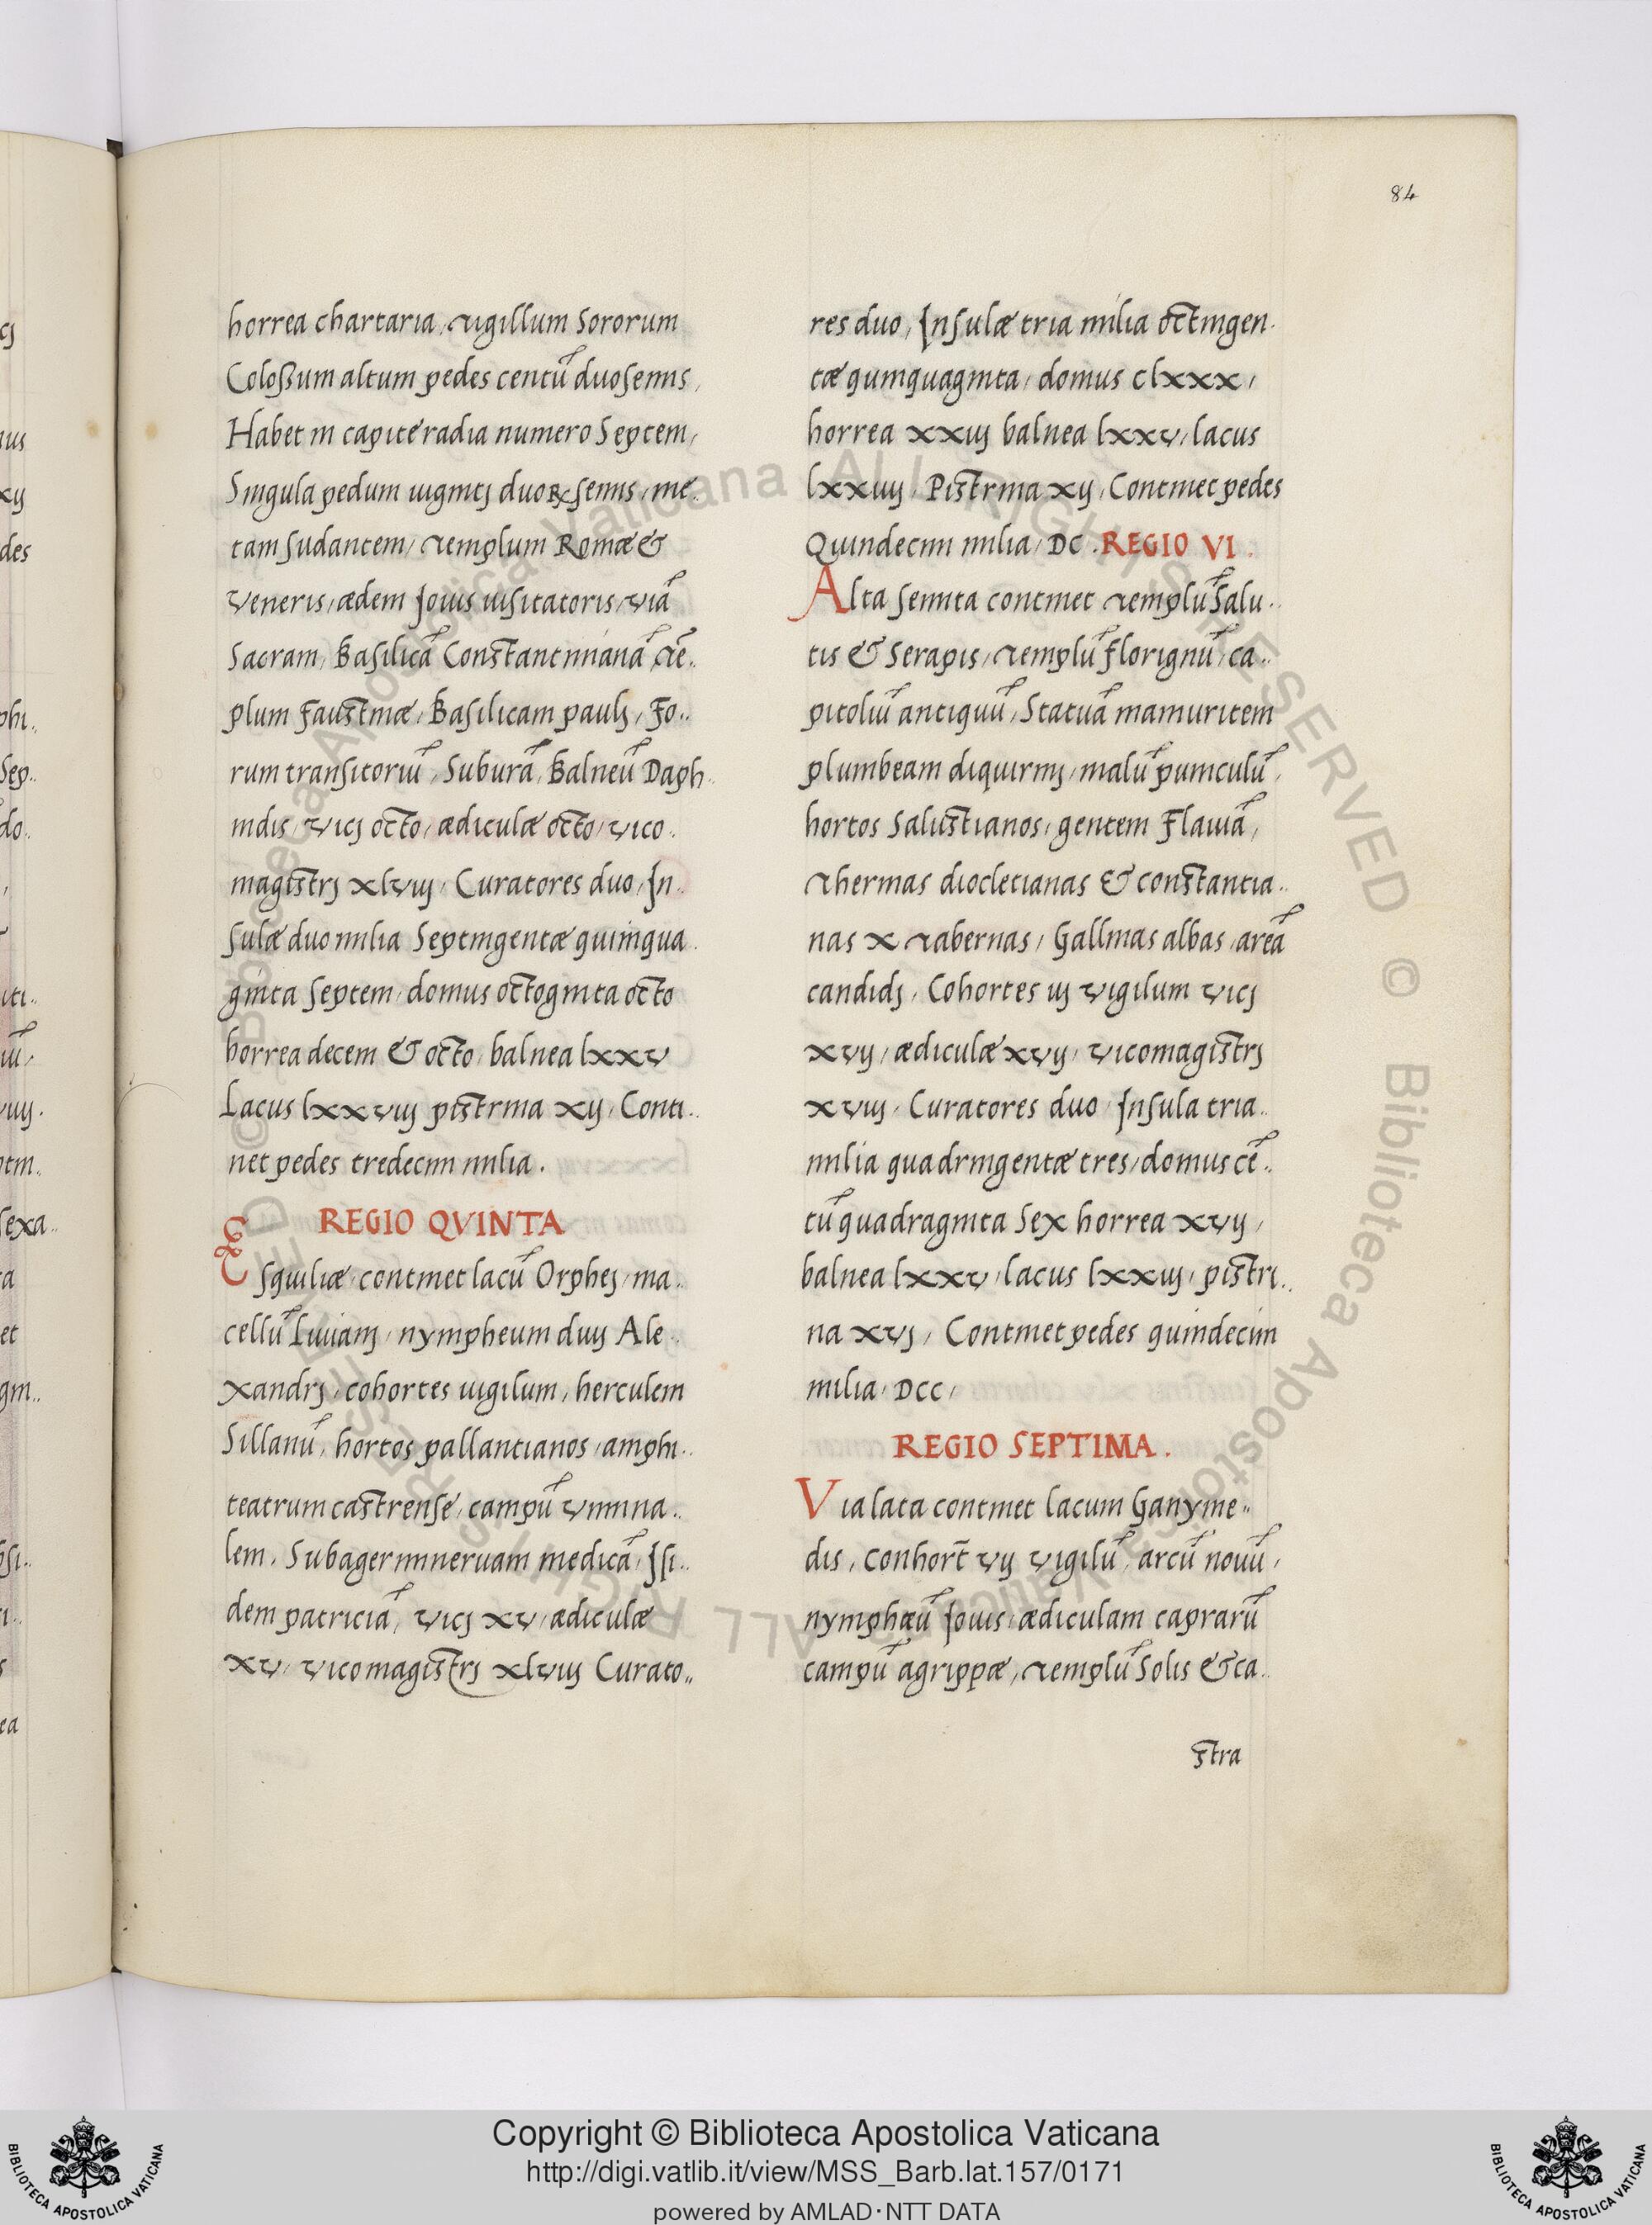 84
horrea chartaria, Tigillum Sororum
Colossum altum pedes centũ duosemis,
Habet in capite radia numero Septem,
Singula pedum uigintj duoꝝ semis, me..
tam sudantem, Templum Romæ &
Veneris, ædem Jouis uisitatoris, viã
Sacram, Basilicã Constantinianã, Tẽ..
plum Faustinæ, Basilicam paulj, Fo..
rum transitoriũ, Suburã, Balneũ Daph..
nidis, vicj octo, ædiculæ octo, vico..
magistrj xlviij, Curatores duo, In..
sulæ duo milia Septingentæ quinqua..
ginta septem, domus octoginta octo
horrea decem & octo, balnea lxxv
Lacus lxxviij pistrina xij, Conti..
net pedes tredecim milia.
REGIO QVINTA
Esquiliæ, continet lacũ Orphej, ma..
cellũ Liuianj, nympheum duij Ale..
xandrj, cohortes uigilum, herculem
Sillanũ, hortos pallantianos, amphi..
teatrum castrense, campũ vimina..
lem, Subager mineruam medicã, Isi..
dem patriciã, vicj xv, ædiculæ
xv, vicomagistrj xlviij Curato..
res duo, Insulæ tria milia octingen..
tæ quinquaginta, domus clxxx,
horrea xxiij balnea lxxv, lacus
lxxiiij, Pistrina xij, Continet pedes
Quindecim milia, DC. REGIO VI.
Alta semita continet templũ Salu..
tis & Serapis, templũ florignũ, ca..
pitoliũ antiquũ, Statuã mamuritem
plumbeam diquirinj, malũ puniculũ,
hortos Salustianos, gentem Flauiã,
Thermas diocletianas & constantia..
nas x tabernas, Gallinas albas, areã
candidj, Cohortes iij vigilum vicj
xvij, ædiculæ xvij, vicomagistrj
xviij, Curatores duo, Insula tria..
milia quadringentæ tres, domus cẽ..
tũ quadraginta Sex horrea xvij,
balnea lxxv, lacus lxxiij, pistri..
na xvj, Continet pedes quindecim
milia, DCC,
REGIO SEPTIMA.
Via lata continet lacum Ganyme..
dis, conhort̃ vij vigilũ, arcũ nouũ,
nymphæũ Jouis, ædiculam caprarũ
campũ agrippæ, templũ Solis & ca..
stra
Copyright © Biblioteca Apostolica Vaticana
http://digi.vatlib.it/view/MSS_Barb.lat.157/0171
powered by AMLAD·NTT DATA